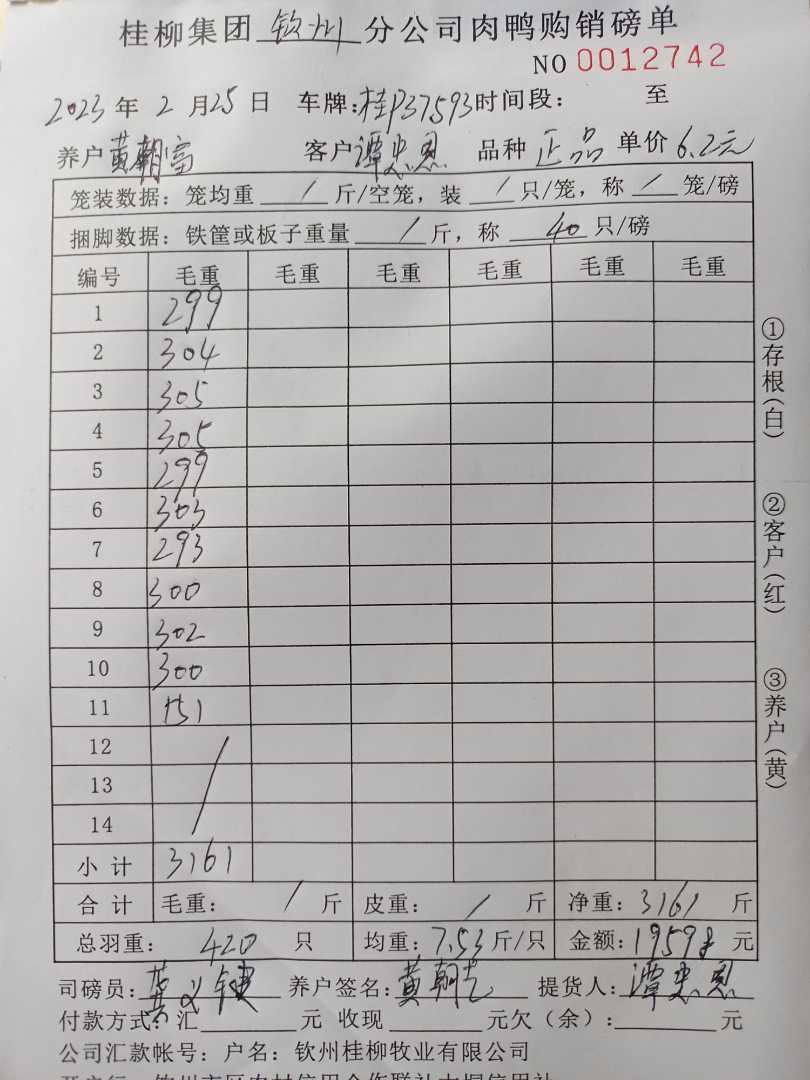 桂柳集团 钦州 分公司肉鸭购销磅单
NO 0012742
2023 年 2 月 25 日 车牌：桂P37593 时间段： 至
养户 黄朝富 客户 谭忠恩 品种 正品 单价 6.2元
笼装数据：笼均重 / 斤/空笼，装 / 只/笼，称 / 笼/磅
捆脚数据：铁筐或板子重量 / 斤，称 40 只/磅
编号 毛重 毛重 毛重 毛重 毛重 毛重
1 299
2 304
3 305
4 305
5 299
6 303
7 293
8 300
9 302
10 300
11 151
12
13 /
14
小 计 3161
合 计 毛重： / 斤 皮重： / 斤 净重：3161 斤
总羽重： 420 只 均重：7.53 斤/只 金额：19598 元
司磅员： 养户签名：黄朝 提货人：谭忠恩
付款方式：汇 元 收现 元欠（余）： 元
公司汇款帐号：户名：钦州桂柳牧业有限公司
①存根（白）
②客户（红）
③养户（黄）